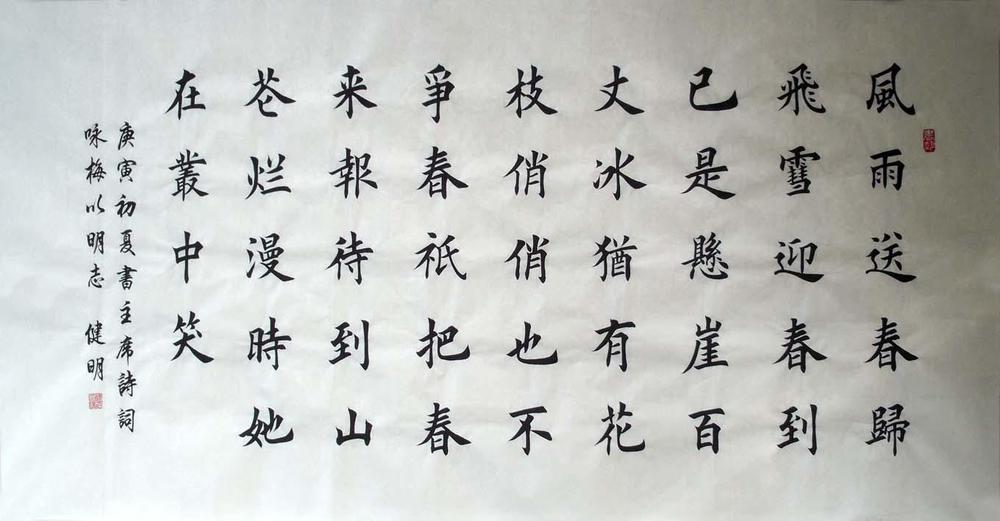 風雨送春歸
飛雪迎春到
已是懸崖百
丈冰猶有花
枝俏俏也不
爭春祇把春
来報待到山
花烂漫時她
在叢中笑
庚寅初夏書主席詩詞
咏梅以明志 健明